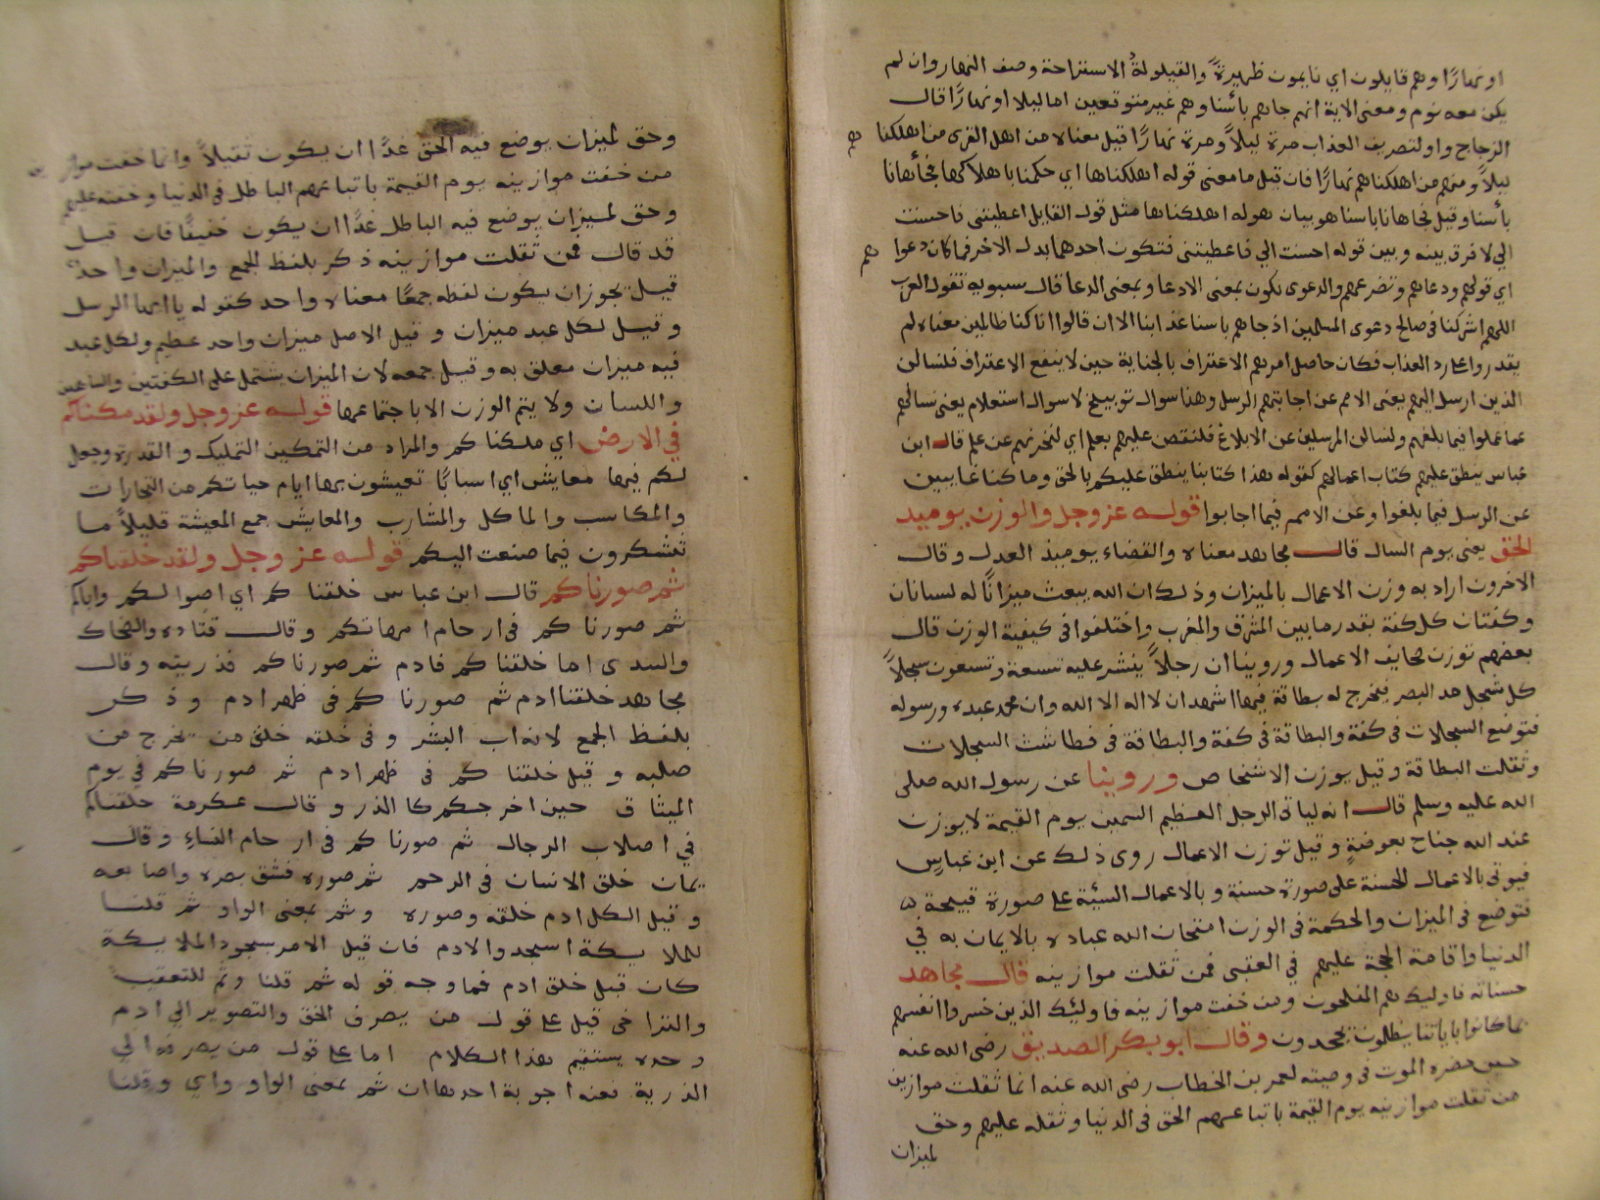 او نهارًا وهم قايلون اي نايمون ظهيرةً والقيلولةُ الاستراحة وصف النهار وان لم
يكن معه نوم ومعنى الاية انهم جاهم بأسنا وهم غير متوقعين اما ليلا او نهارًا قال
الزجاج واو لتصريف العذاب مرة ليلاً ومرة نهارًا قيل معناه من اهل القرى من اهلكنا هم
ليلاً ومنهم من اهلكناهم نهارًا فان قيل ما معنى قوله اهلكناها اي حكمنا باهلاكها فجأتهانا
بأسنا وقيل فجاها بأسنا هو بيان هوله اهلكناها مثل قول القايل اعطيتنى فاحسنت
الي لا فرق بينه وبين قوله احسنت الي فاعطيتنى فتكون احدهما بدل الاخر فما كان دعواهم
اي قولهم ودعاهم وتضرعهم والدعوى تكون بمعنى الادعا وبمعنى الدعا قال سيبويه تقول العرب
اللهم اشركنا في صالح دعوى المسلمين اذ جاهم باسنا عذابنا الا ان قالوا انا كنا ظالمين معناه لم
يقدروا على رد العذاب فكان حاصل امرهم الاعتراف بالجناية حين لا ينفع الاعتراف فلنسالن
الذين ارسل اليهم يعنى الامم عن اجابتهم الرسل وهذا سوال توبيخ لا سوال استعلام يعنى نسالهم
عما عملوا فيما بلغهم ولنسالن المرسلين عن الابلاغ فلنقصن عليهم بعلم اي لنخبرنهم عن علم قال ابن
عباس ينطق عليهم كتاب اعمالهم كقوله هذا كتابنا ينطق عليكم بالحق وما كنا غايبين
عن الرسل فيما بلغوا وعن الامم فيما اجابوا قوله عز وجل والوزن يوميذ
الحق يعنى يوم السال قال مجاهد معناه والقضاء يوميذ العدل وقال
الاخرون اراد به وزن الاعمال بالميزان وذلك ان الله يبعث ميزانًا له لسانان
وكفتان كل كفة بقدر ما بين المشرق والمغرب واختلفوا في كيفية الوزن قال
بعضهم توزن صحايف الاعمال وروينا ان رجلاً ينشر عليه تسعة وتسعون سجلاً
كل سجل مد البصر فيخرج له بطاقة فيها اشهد ان لا اله الا الله وان محمد عبده ورسوله
فتوضع السجلات في كفة والبطاقة في كفة والبطاقة في فطاشت السجلات
وثقلت البطاقة وقيل يوزن الاشخاص وروينا عن رسول الله صلى
الله عليه وسلم قال انه لياتى الرجل العظيم السمين يوم القيمة لا يوزن
عند الله جناح بعوضةٍ وقيل توزن الاعمال روى ذلك عن ابن عباسٍ
فيوتى بالاعمال الحسنة على صورة حسنة وبالاعمال السيئة على صورة قبيحة
فتوضع في الميزان والحكمة في الوزن امتحان الله عباده بالايمان به في
الدنيا واقامة الحجة عليهم في العقبى فمن ثقلت موازينه قال مجاهد
حسناته فاوليك هم المفلحون ومن خفت موازينه فاوليك الذين خسروا انفسهم
بما كانوا باياتنا يظلمون يجحدون وقال ابو بكر الصديق رضى الله عنه
حين حضره الموت في وصيته لعمر بن الخطاب رضى الله عنه انما ثقلت موازين
من ثقلت موازينه يوم القيمة باتباعهم الحق في الدنيا وثقله عليهم وحق
لميزان
وحق لميزان يوضع فيه الحق غدًا ان يكون ثقيلاً وانما خفت موازين
من خفت موازينه يوم القيمة باتباعهم الباطل في الدنيا وخفته عليهم
وحق لميزان يوضع فيه الباطل غدًا ان يكون خفيفًا فان قيل
قد قال فمن ثقلت موازينه ذكر بلفظ الجمع والميزان واحدٌ
قيل يجوز ان يكون لفظه جمعًا معناه واحد كقوله يا ايها الرسل
وقيل لكل عبد ميزان وقيل الاصل ميزان واحد عظيم ولكل عبد
فيه ميزان معلق به وقيل جمعه لان الميزان يشتمل على الكفتين والشاهين
واللسان ولا يتم الوزن الا باجتماعها قوله عز وجل ولقد مكناكم
في الارض اي ملكناكم والمراد من التمكين التمليك والقدرة وجعل
لكم فيها معايش اي اسبابًا تعيشون بها ايام حياتكم من التجارات
والمكاسب والماكل والمشارب والمعايش جمع المعيشة قليلاً ما
تشكرون فيما صنعت اليكم قوله عز وجل ولقد خلقناكم
ثم صورناكم قال ابن عباس خلقناكم اي اصولكم واباكم
ثم صورناكم في ارحام امهاتكم وقال قتاده والضحاك
والسدى اما خلقناكم فادم ثم صورناكم فذريته وقال
مجاهد خلقنا ادم ثم صورناكم في ظهر ادم وذكر
بلفظ الجمع لانه اب البشر وفى خلقه خلق من يخرج من
صلبه وقيل خلقناكم في ظهر ادم ثم صورناكم في يوم
الميثاق حين اخرجكم كالذر وقال عكرمة خلقناكم
في اصلاب الرجال ثم صورناكم في ارحام النساء وقال
يمان خلق الانسان في الرحم ثم صوره فشق بصره واصابعه
وقيل الكل ادم خلقه وصوره وثم بمعنى الواو ثم قلنا
للملايكة اسجدوا لادم فان قيل الامر بسجود الملايكة
كان قبل خلق ادم فما وجه قوله ثم قلنا وثم للتعقب
والتراخى قيل على قول من يصرف الخلق والتصوير الى ادم
وحده يستقيم هذا الكلام اما على قول من يصرفه الى
الذرية فعنه اجوبة احدها ان ثم بمعنى الواو واي وقلنا